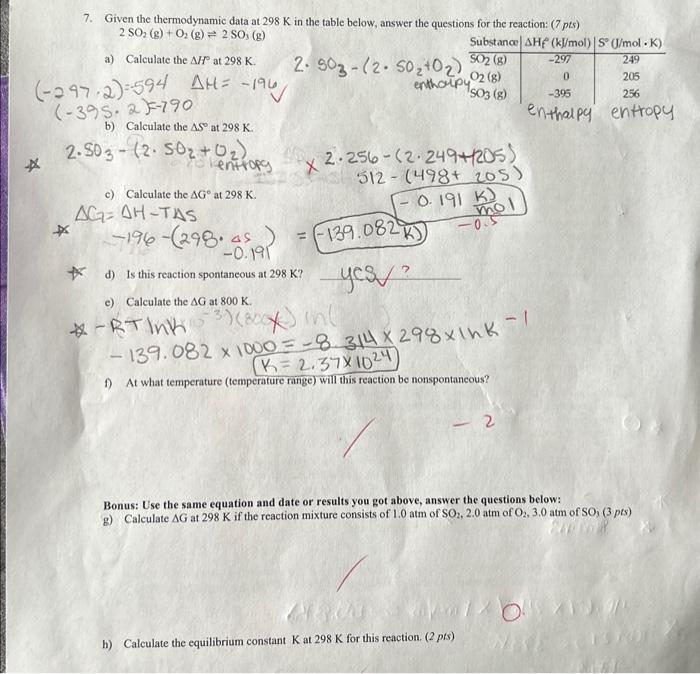 7. Given the thermodynamic data at 298 K in the table below, answer the questions for the reaction: (7 pts)
2 SO₂ (g) + O₂ (g) ⇌ 2 SO₃ (g)
Substance ΔHf° (kJ/mol) S° (J/mol · K)
SO₂ (g) -297 249
O₂ (g) 0 205
SO₃ (g) -395 256
enthalpy entropy
a) Calculate the ΔH° at 298 K.
2 · SO₃ - (2 · SO₂ + O₂)
enthalpy
(-297 · 2) = 594 ΔH = -196 ✓
(-395 · 2) = -790
b) Calculate the ΔS° at 298 K.
2 · SO₃ - (2 · SO₂ + O₂)
entropy
x 2 · 256 - (2 · 249 + 205)
512 - (498 + 205)
- 0.191 KJ/mol
-0.5
c) Calculate the ΔG° at 298 K.
ΔG = ΔH - TΔS
-196 - (298 · ΔS) = -139.082 KJ
-0.191
d) Is this reaction spontaneous at 298 K? yes ✓ ?
e) Calculate the ΔG at 800 K.
- RT lnK
-1
- 139.082 × 1000 = - 8.314 × 298 × ln K
K = 2.37 × 10²⁴
f) At what temperature (temperature range) will this reaction be nonspontaneous?
/ - 2
Bonus: Use the same equation and date or results you got above, answer the questions below:
g) Calculate ΔG at 298 K if the reaction mixture consists of 1.0 atm of SO₂, 2.0 atm of O₂, 3.0 atm of SO₃ (3 pts)
/
0
h) Calculate the equilibrium constant K at 298 K for this reaction. (2 pts)